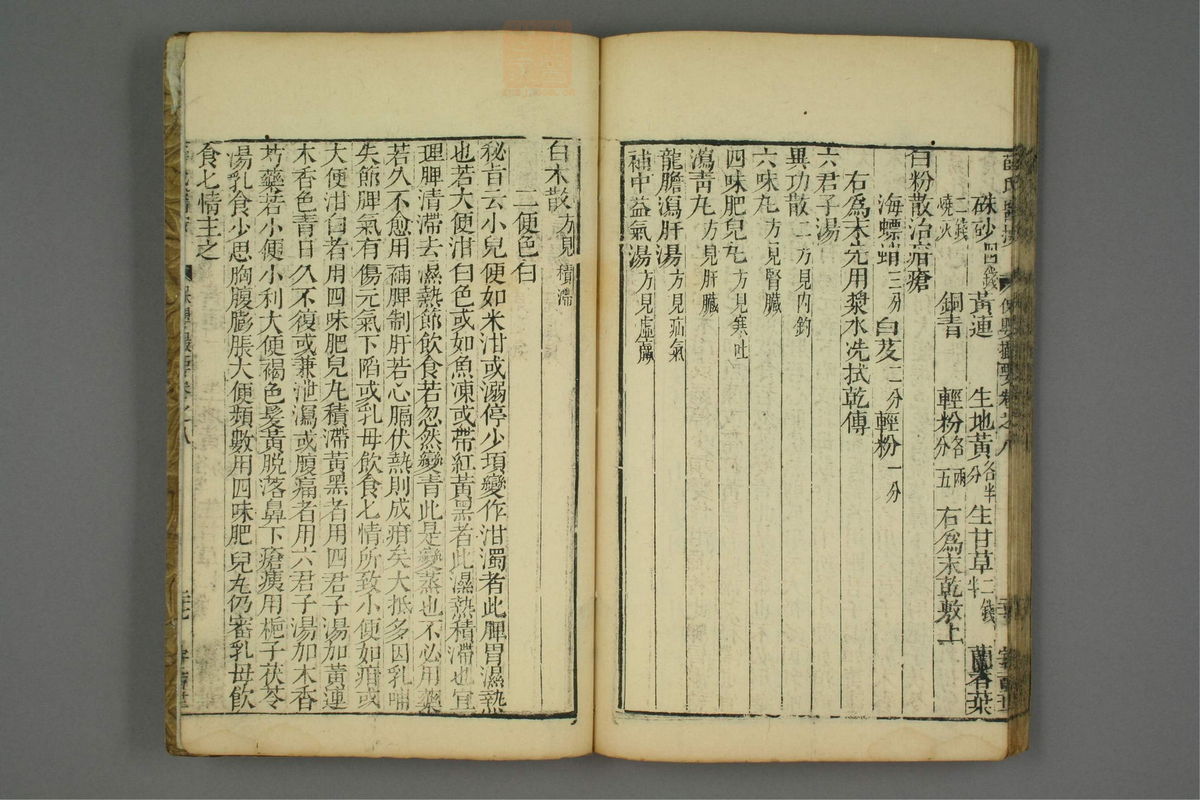 硃砂四錢 黃連 生地黃各半分 生甘草二錢半 蘭香葉
二錢燒灰 銅青 輕粉各兩分五 右為末乾敷上
白粉散治疳瘡
海螵蛸三分 白芨二分 輕粉一分
右為末先用漿水洗拭乾傅
六君子湯
異功散二方見內釣
六味丸方見腎臟
四味肥兒丸方見寒吐
瀉青丸方見肝臟
龍膽瀉肝湯方見疝氣
補中益氣湯方見虛羸
白朮散方見積滯
二便色白
秘旨云小兒便如米泔或溺停少頃變作泔濁者此脾胃濕熱
也若大便泔白色或如魚凍或帶紅黃黑者此濕熱積滯也宜
理脾清滯去濕熱節飲食若忽然變青此是變蒸也不必用藥
若久不愈用補脾制肝若心膈伏熱則成疳矣大抵多因乳哺
失節脾氣有傷元氣下陷或乳母飲食七情所致小便如疳或
大便泔白者用四味肥兒丸積滯黃黑者用四君子湯加黃連
木香色青日久不復或兼泄瀉或腹痛者用六君子湯加木香
芍藥若小便小利大便褐色髮黃脫落鼻下瘡痍用梔子茯苓
湯乳食少思胸腹膨脹大便頻數用四味肥兒丸仍審乳母飲
食七情主之